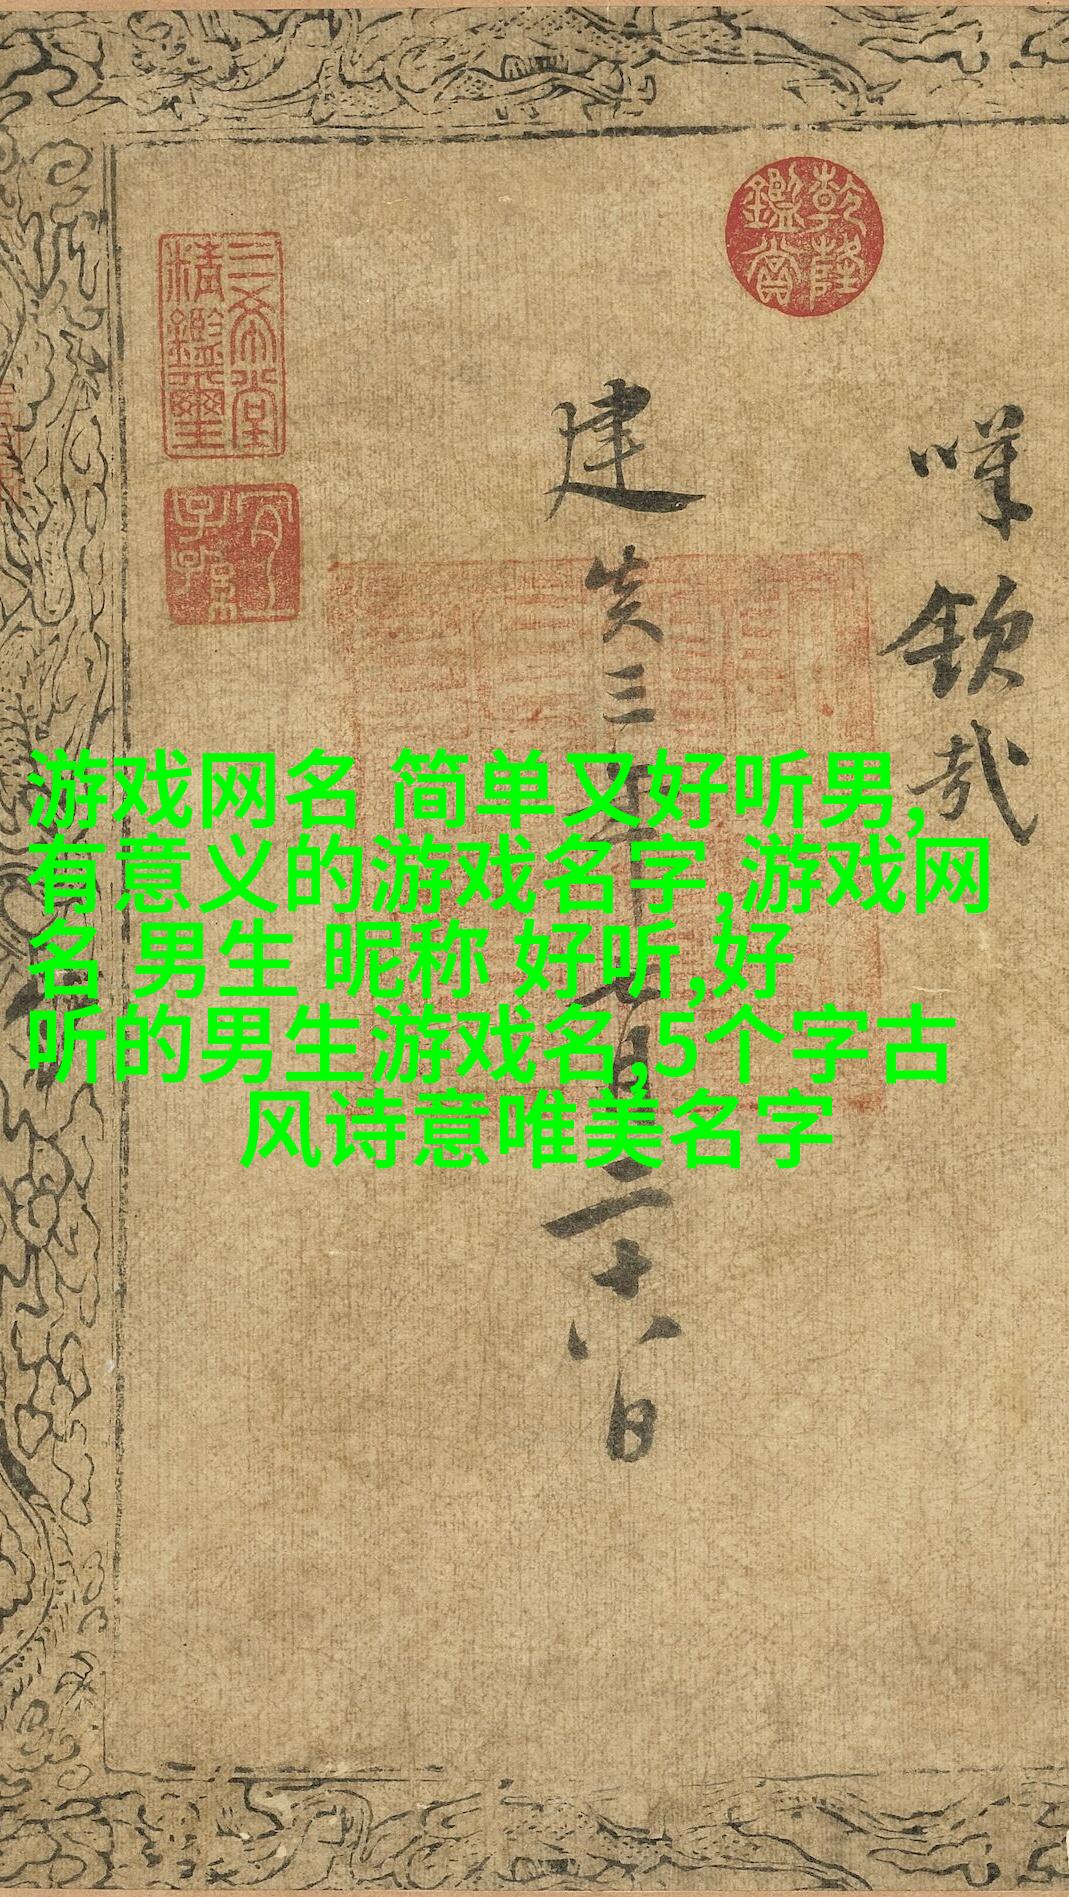 游戏网名 简单又好听男,
有意义的游戏名字,游戏网
名 男生 昵称 好听,好
听的男生游戏名,5个字古
风诗意唯美名字
嘆 欽 哉
建炎三年七月二十八日
乾隆鑑賞
三希堂精鑑璽
宜子孫